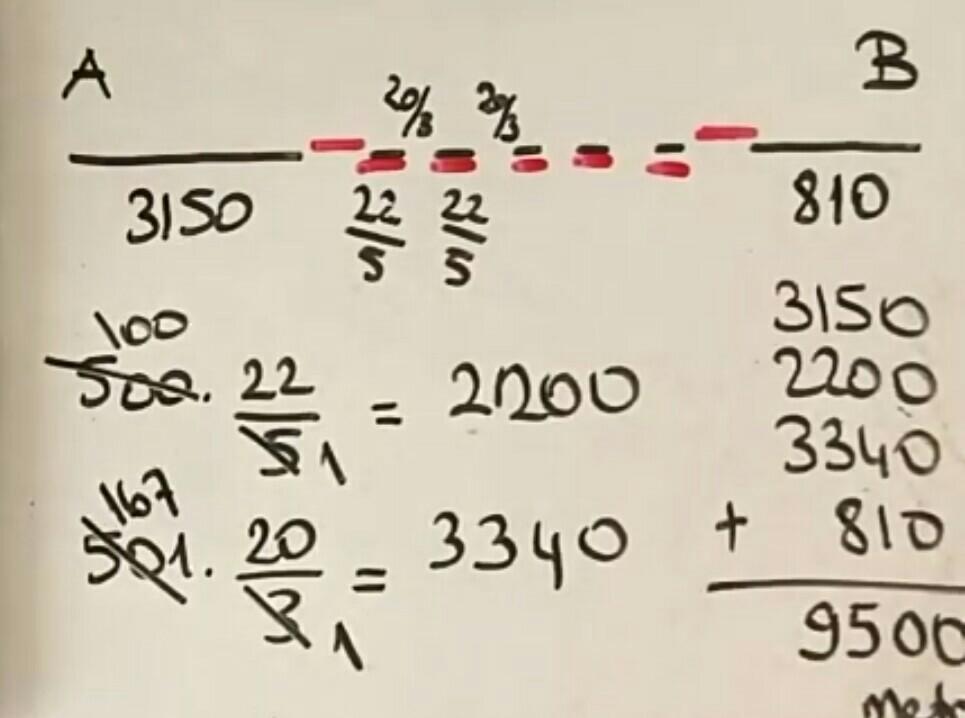 A B
20/3 20/3
3150 22/5 22/5 810
100
500. 22/5 1 = 2200
167
501. 20/3 1 = 3340
3150
2200
3340
+ 810
9500